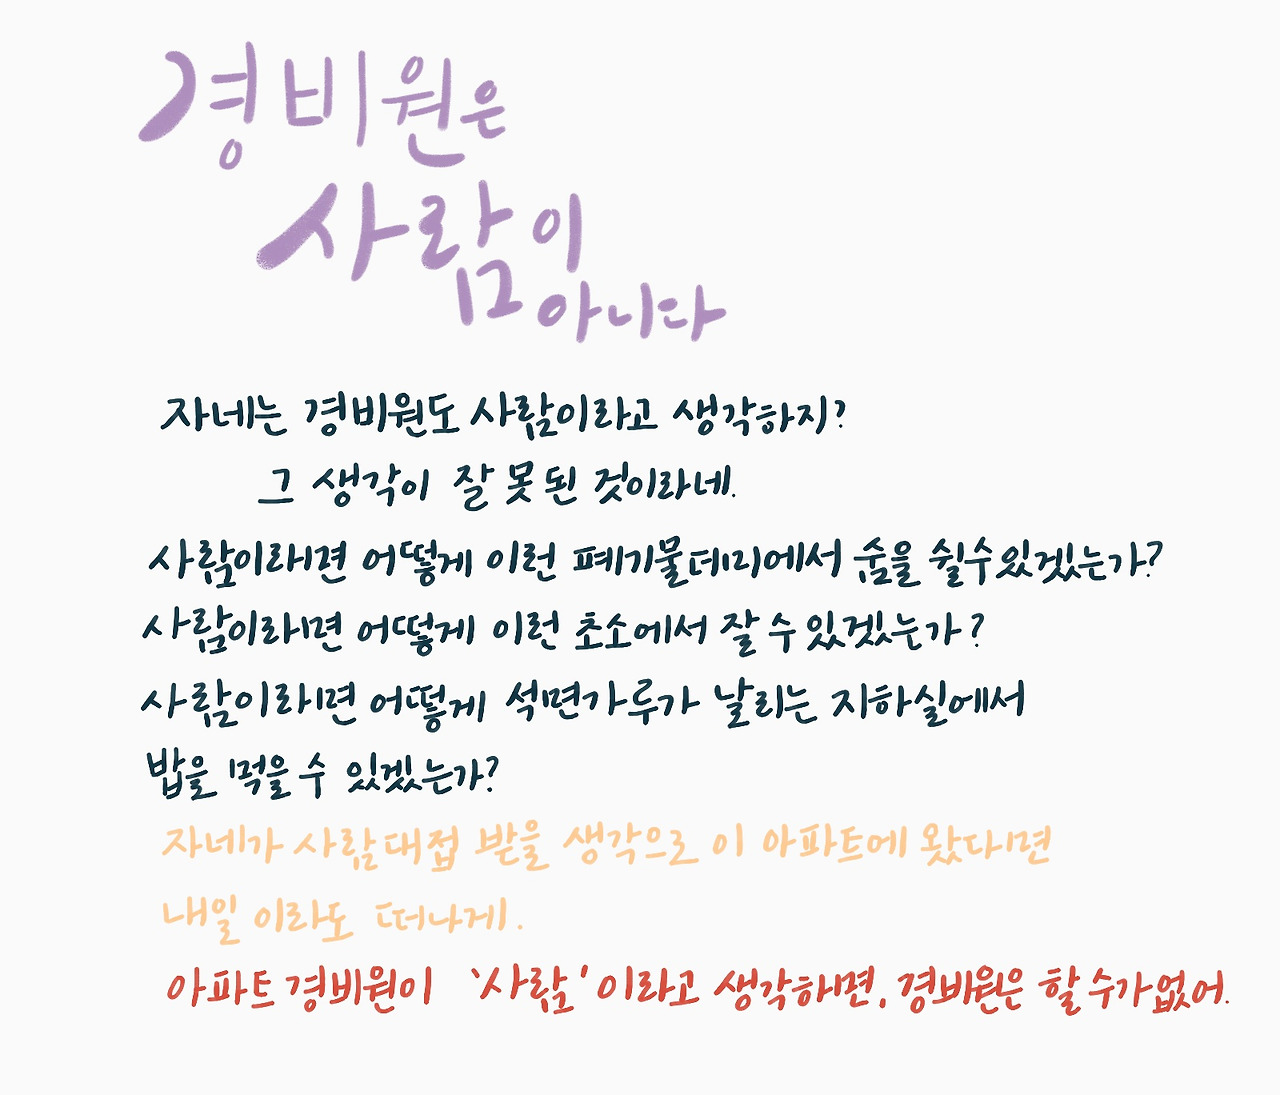 경비원은
사람이
아니다
자네는 경비원도 사람이라고 생각하지?
그 생각이 잘못된 것이라네.
사람이라면 어떻게 이런 폐기물더미에서 숨을 쉴수있겠는가?
사람이라면 어떻게 이런 초소에서 잘 수 있겠는가?
사람이라면 어떻게 석면가루가 날리는 지하실에서
밥을 먹을 수 있겠는가?
자네가 사람대접 받을 생각으로 이 아파트에 왔다면
내일 이라도 떠나게.
아파트 경비원이 '사람'이라고 생각하면, 경비원은 할 수가없어.